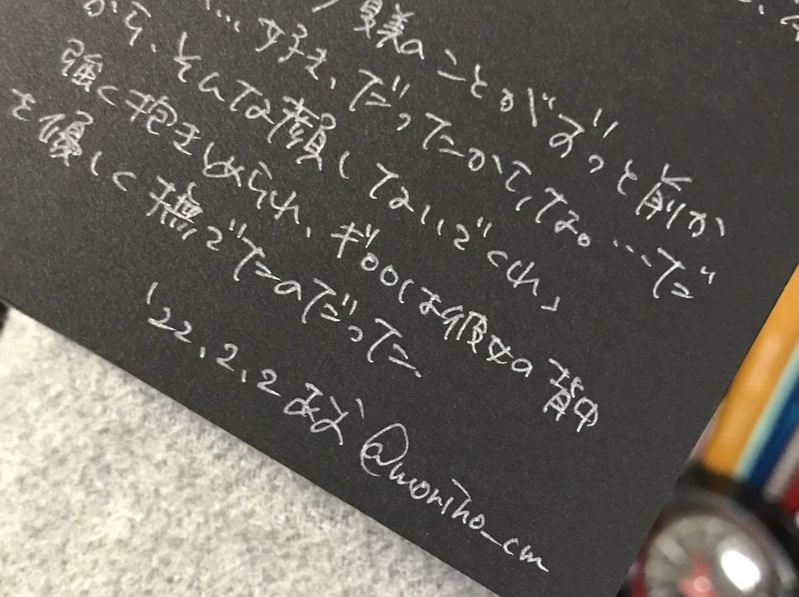 夏美のことがずっと前か
…好き、だったからな。…だ
から、そんな顔しないでくれ」
強く抱きしめられ、ギロロは彼女の背中
を優しく撫でたのだった。
'22.2.2 @moriho_cm